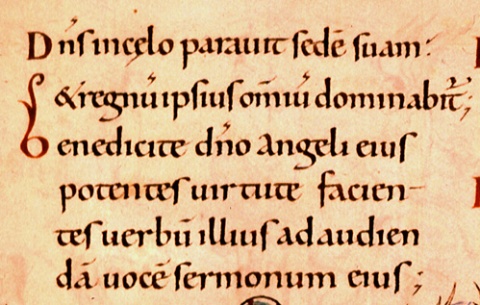 Dn̄s in cęlo parauit sedē suam:
& regnū ipsius om̄iū dominabit᷑;
Benedicite dn̄o angeli eius
potentes uirtute facien-
tes uerbū illius ad audien
dā uocē sermonum eius;